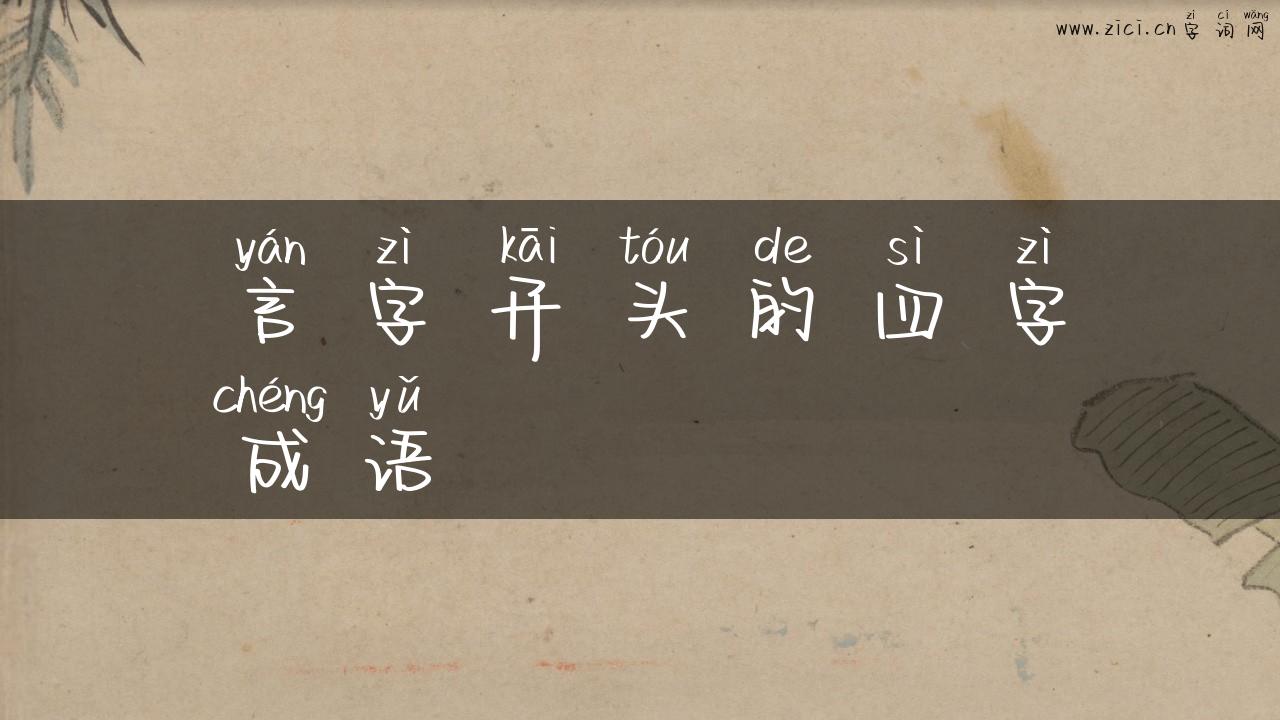 zì cí wǎng
www.zici.cn 字词网
yán zì kāi tóu de sì zì
言字开头的四字
chéng yǔ
成语